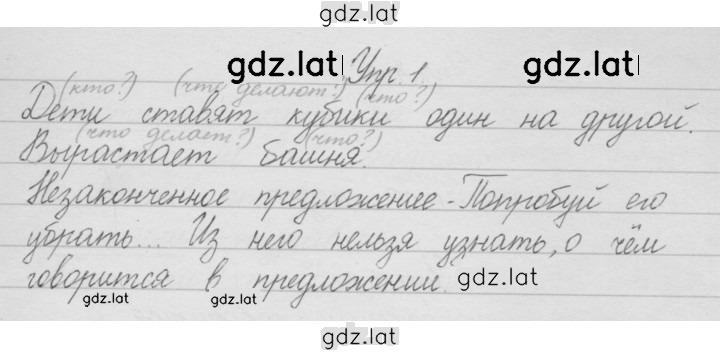 gdz.lat
gdz.lat Упр. 1. gdz.lat
(кто?) (что делают?) (что?)
Дети ставят кубики один на другой.
(что делает?) (что?)
Вырастает башня.
Незаконченное предложение - Попробуй его
убрать... Из него нельзя узнать, о чём
говорится в предложении. gdz.lat
gdz.lat gdz.lat
gdz.lat